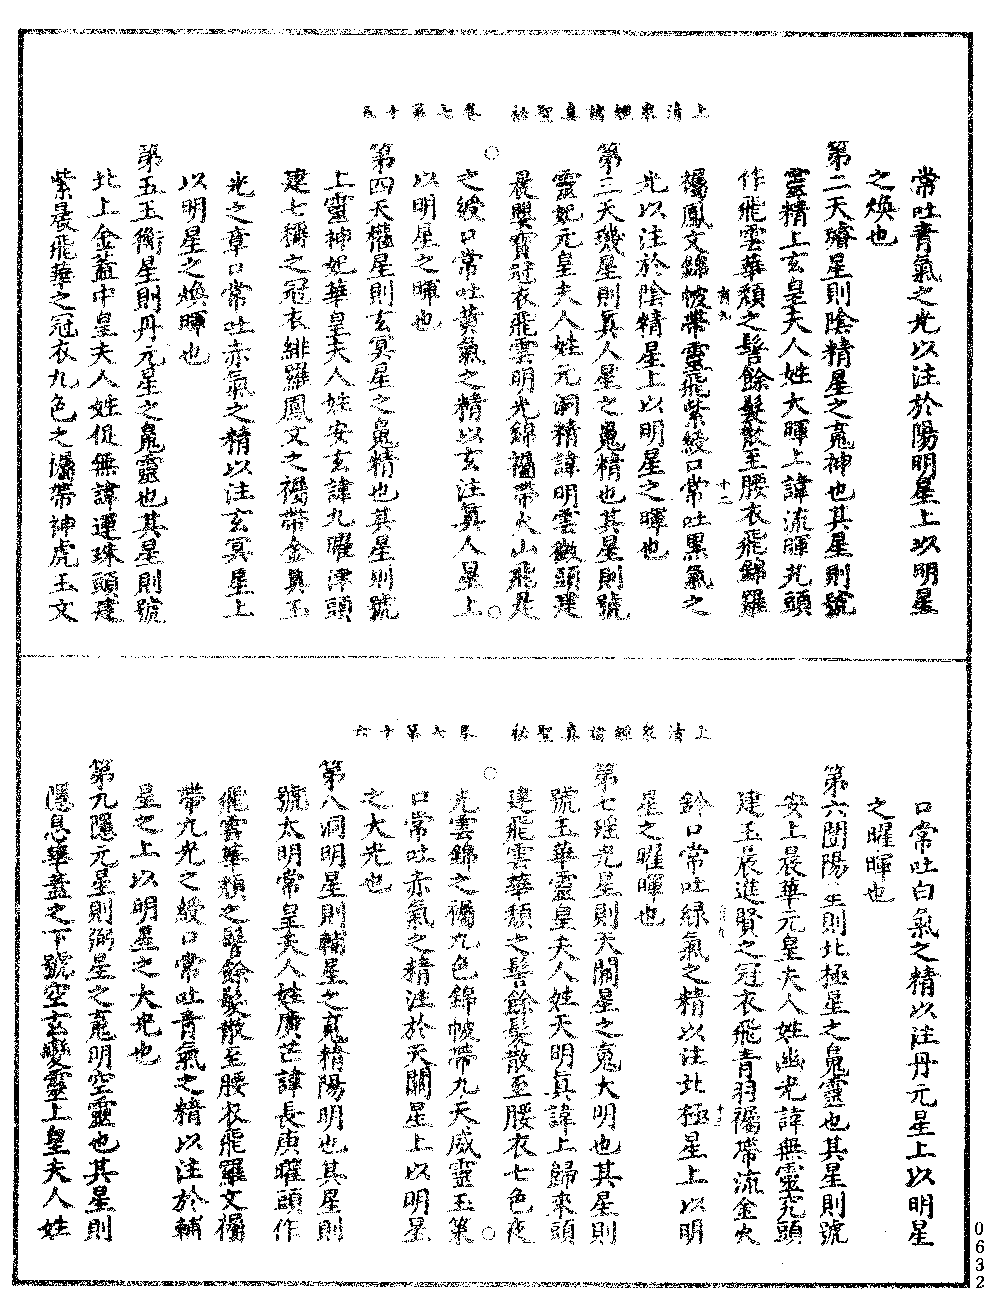 上清衆經諸真聖秘　卷七第十五
常吐青氣之光以注於陽明星上以明星
之煥也
第二天璿星則陰精星之䰟神也其星則號
靈精上玄皇夫人姓大暉上諱流暉兊頭
作飛雲華頹之髻餘髮散至腰衣飛錦羅
襡鳳文錦帔帶靈飛紫綬口常吐黑氣之
光以注於陰精星上以明星之暉也
第三天璣星則真人星之䰟精也其星則號
靈妃元皇夫人姓元洞精諱明雲徽頭建
晨嬰寶冠衣飛雲明光錦襡帶火山飛晨
之綬口常吐黄氣之精以玄注真人星上
以明星之暉也
第四天權星則玄冥星之䰟精也其星則號
上靈神妃華皇夫人姓安玄諱九曜津頭
建七稱之冠衣緋羅鳳文之襡帶金真玉
光之章口常吐赤氣之精以注玄冥星上
以明星之煥暉也
第五玉衡星則丹元星之䰟靈也其星則號
北上金蓋中皇夫人姓促無諱運珠頭建
紫晨飛華之冠衣九色之襡帶神虎玉文
上清衆經諸真聖秘　卷七第十六
口常吐白氣之精以注丹元星上以明星
之曜暉也
第六闓陽星則北極星之䰟靈也其星則號
安上晨華元皇夫人姓幽光諱無靈究頭
建玉晨進賢之冠衣飛青羽襡帶流金火
鈴口常吐緑氣之精以注北極星上以明
星之曜暉也
第七瑶光星則天關星之䰟大明也其星則
號玉華靈皇夫人姓天明真諱上歸來頭
建飛雲華頹之髻餘髮散至腰衣七色夜
光雲錦之襡九色錦帔帶九天威靈玉策
口常吐赤氣之精注於天關星上以明星
之大光也
第八洞明星則輔星之䰟精陽明也其星則
號太明常皇夫人姓廣芒諱長庚曜頭作
飛雲華頹之髻餘髮散至腰衣飛羅文襡
帶九光之綬口常吐青氣之精以注於輔
星之上以明星之大光也
第九隱元星則弼星之䰟明空靈也其星則
隱息華蓋之下號空玄變靈上皇夫人姓
0632